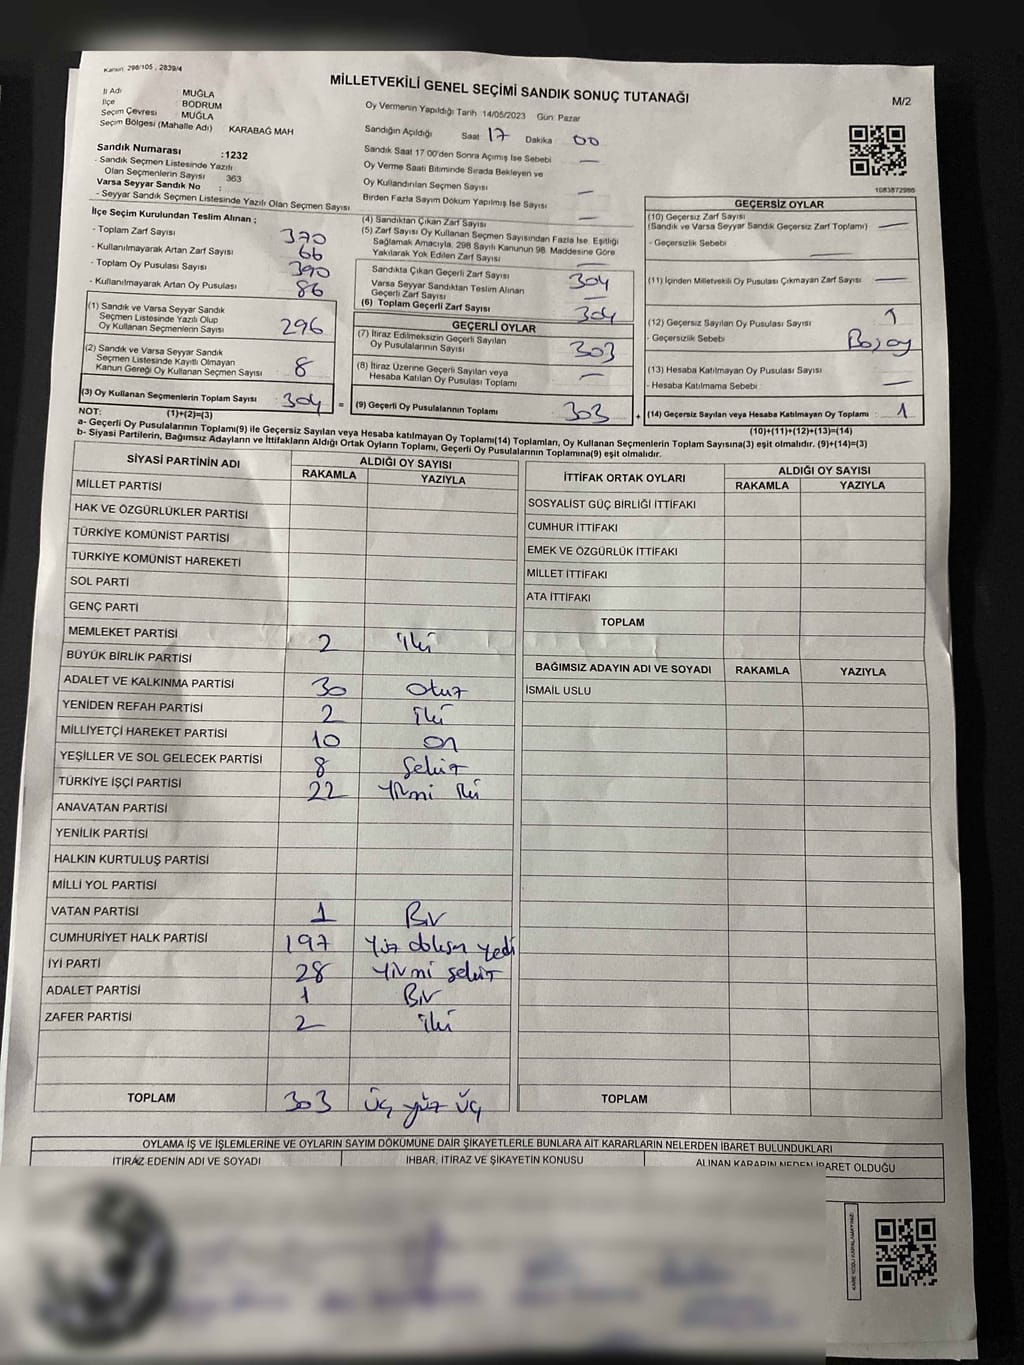 Kanun. 298/105 , 2839/4
MİLLETVEKİLİ GENEL SEÇİMİ SANDIK SONUÇ TUTANAĞI
M/2
İl Adı MUĞLA
İlçe BODRUM
Seçim Çevresi MUĞLA
Seçim Bölgesi (Mahalle Adı) KARABAĞ MAH
Sandık Numarası :1232
- Sandık Seçmen Listesinde Yazılı
Olan Seçmenlerin Sayısı 363
Varsa Seyyar Sandık No :
- Seyyar Sandık Seçmen Listesinde Yazılı Olan Seçmen Sayısı
Oy Vermenin Yapıldığı Tarih 14/05/2023 Gün: Pazar
Sandığın Açıldığı Saat 17 Dakika 00
Sandık Saat 17 00'den Sonra Açılmış İse Sebebi —
Oy Verme Saati Bitiminde Sırada Bekleyen ve
Oy Kullandırılan Seçmen Sayısı —
Birden Fazla Sayım Döküm Yapılmış İse Sayısı —
1083872986
İlçe Seçim Kurulundan Teslim Alınan ;
- Toplam Zarf Sayısı 370
- Kullanılmayarak Artan Zarf Sayısı 66
- Toplam Oy Pusulası Sayısı 390
- Kullanılmayarak Artan Oy Pusulası 86
(1) Sandık ve Varsa Seyyar Sandık
Seçmen Listesinde Yazılı Olup
Oy Kullanan Seçmenlerin Sayısı 296
(2) Sandık ve Varsa Seyyar Sandık
Seçmen Listesinde Kayıtlı Olmayan
Kanun Gereği Oy Kullanan Seçmen Sayısı 8
(3) Oy Kullanan Seçmenlerin Toplam Sayısı 304 =
(1)+(2)=(3)
(4) Sandıktan Çıkan Zarf Sayısı
(5) Zarf Sayısı Oy Kullanan Seçmen Sayısından Fazla İse, Eşitliği
Sağlamak Amacıyla, 298 Sayılı Kanunun 98. Maddesine Göre
Yakılarak Yok Edilen Zarf Sayısı —
Sandıkta Çıkan Geçerli Zarf Sayısı 304
Varsa Seyyar Sandıktan Teslim Alınan
Geçerli Zarf Sayısı —
(6) Toplam Geçerli Zarf Sayısı 304
GEÇERLİ OYLAR
(7) İtiraz Edilmeksizin Geçerli Sayılan
Oy Pusulalarının Sayısı 303
(8) İtiraz Üzerine Geçerli Sayılan veya
Hesaba Katılan Oy Pusulası Toplamı —
(9) Geçerli Oy Pusulalarının Toplamı 303 +
GEÇERSİZ OYLAR
(10) Geçersiz Zarf Sayısı
(Sandık ve Varsa Seyyar Sandık Geçersiz Zarf Toplamı) —
- Geçersizlik Sebebi —
(11) İçinden Milletvekili Oy Pusulası Çıkmayan Zarf Sayısı —
(12) Geçersiz Sayılan Oy Pusulası Sayısı 1
- Geçersizlik Sebebi :
(13) Hesaba Katılmayan Oy Pusulası Sayısı
- Hesaba Katılmama Sebebi : —
(14) Geçersiz Sayılan veya Hesaba Katılmayan Oy Toplamı : 1
(10)+(11)+(12)+(13)=(14)
NOT:
a- Geçerli Oy Pusulalarının Toplamı(9) ile Geçersiz Sayılan veya Hesap katılmayan Oy Toplamı(14) Toplamları, Oy Kullanan Seçmenlerin Toplam Sayısına(3) eşit olmalıdır. (9)+(14)=(3)
b- Siyasi Partilerin, Bağımsız Adayların ve İttifakların Aldığı Ortak Oyların Toplamı, Geçerli Oy Pusulalarının Toplamına(9) eşit olmalıdır.
SİYASİ PARTİNİN ADI ALDIĞI OY SAYISI
RAKAMLA YAZIYLA
MİLLET PARTİSİ
HAK VE ÖZGÜRLÜKLER PARTİSİ
TÜRKİYE KOMÜNİST PARTİSİ
TÜRKİYE KOMÜNİST HAREKETİ
SOL PARTİ
GENÇ PARTİ
MEMLEKET PARTİSİ 2 iki
BÜYÜK BİRLİK PARTİSİ
ADALET VE KALKINMA PARTİSİ 30 otuz
YENİDEN REFAH PARTİSİ 2 iki
MİLLİYETÇİ HAREKET PARTİSİ 10 on
YEŞİLLER VE SOL GELECEK PARTİSİ 8 Sekiz
TÜRKİYE İŞÇİ PARTİSİ 22 Yirmi iki
ANAVATAN PARTİSİ
YENİLİK PARTİSİ
HALKIN KURTULUŞ PARTİSİ
MİLLİ YOL PARTİSİ
VATAN PARTİSİ 1 Bir
CUMHURİYET HALK PARTİSİ 197 Yüz doksan yedi
İYİ PARTİ 28 Yirmi sekiz
ADALET PARTİSİ 1 Bir
ZAFER PARTİSİ 2 iki
TOPLAM 303 üç yüz üç
İTTİFAK ORTAK OYLARI ALDIĞI OY SAYISI
RAKAMLA YAZIYLA
SOSYALİST GÜÇ BİRLİĞİ İTTİFAKI
CUMHUR İTTİFAKI
EMEK VE ÖZGÜRLÜK İTTİFAKI
MİLLET İTTİFAKI
ATA İTTİFAKI
TOPLAM
BAĞIMSIZ ADAYIN ADI VE SOYADI RAKAMLA YAZIYLA
İSMAİL USLU
TOPLAM
OYLAMA İŞ VE İŞLEMLERİNE VE OYLARIN SAYIM DÖKÜMÜNE DAİR ŞİKAYETLERLE BUNLARA AİT KARARLARIN NELERDEN İBARET BULUNDUKLARI
İTİRAZ EDENİN ADI VE SOYADI İHBAR, İTİRAZ VE ŞİKAYETİN KONUSU ALINAN KARARIN NEDEN İBARET OLDUĞU